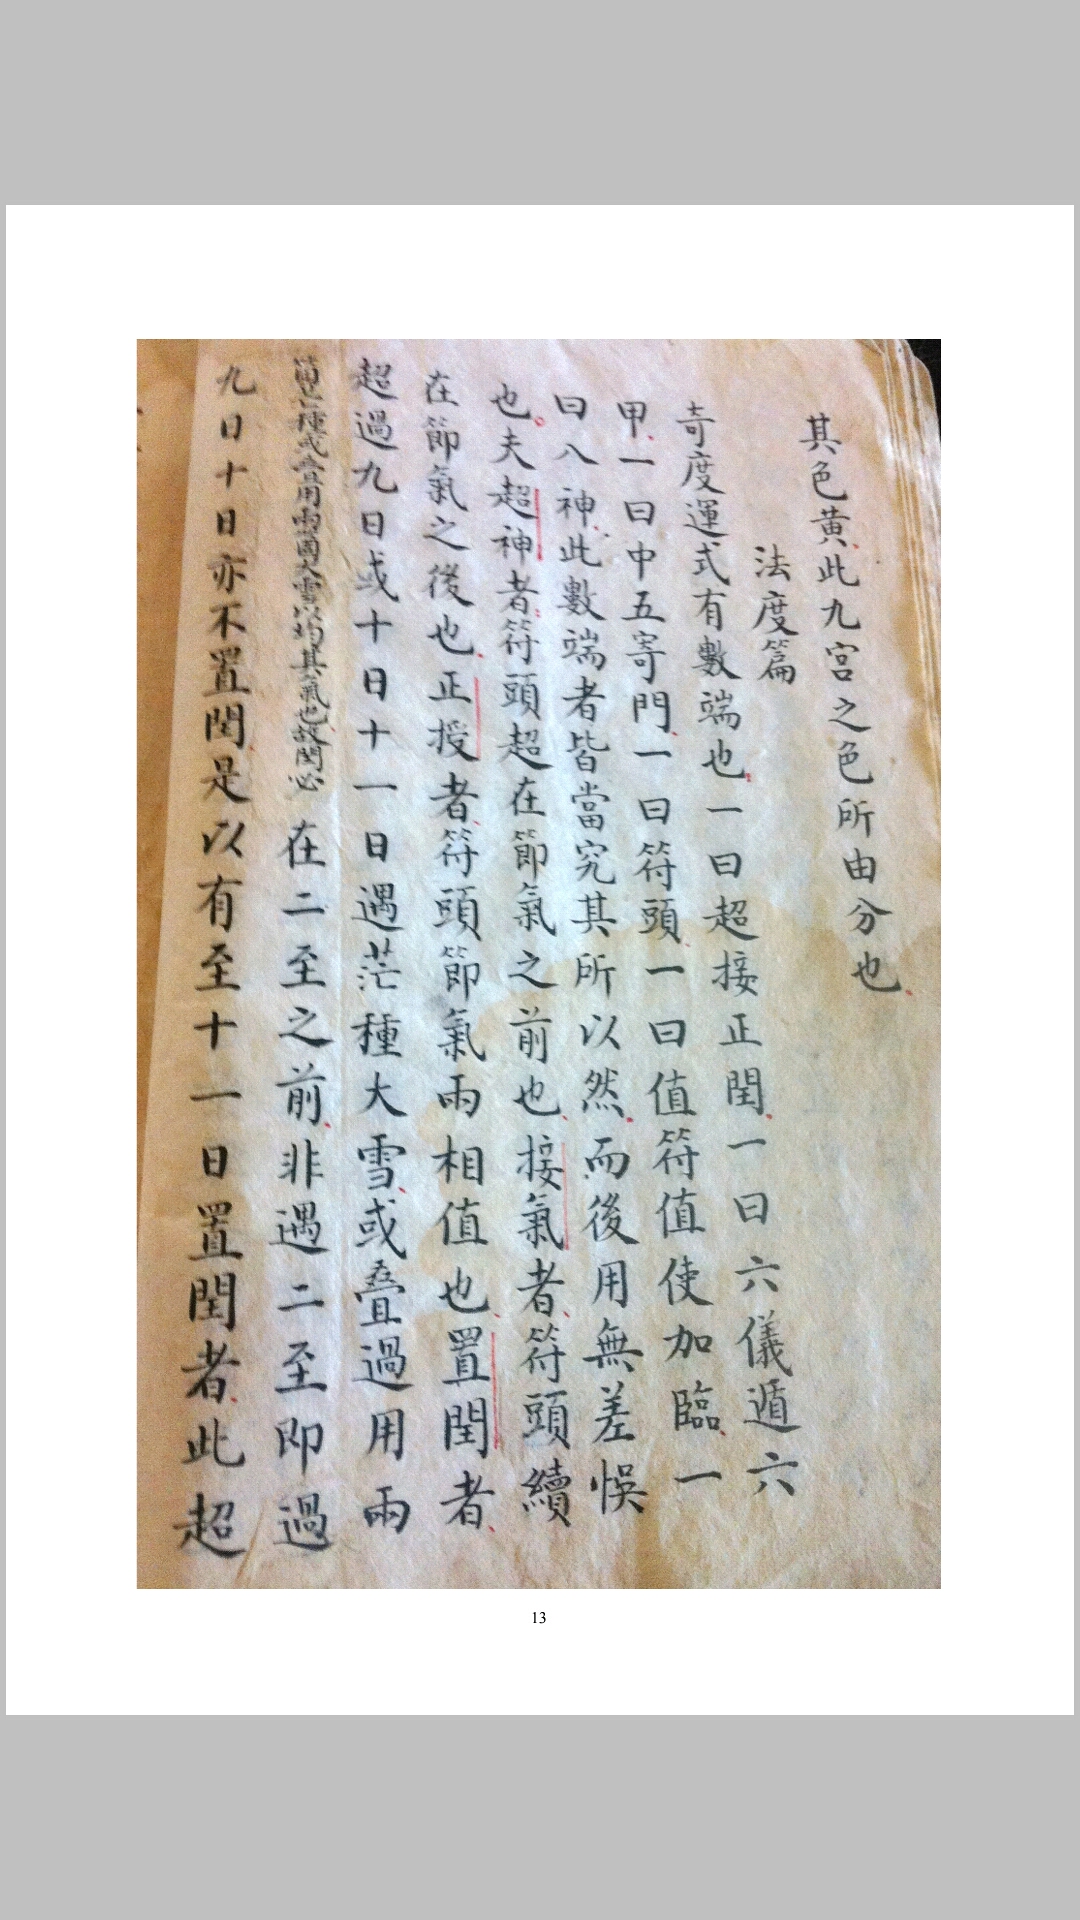 其色黃此九宮之色所由分也
法度篇
奇度運式有數端也一曰超接正閏一曰六儀遁六
甲一曰中五寄門一曰符頭一曰值符值使加臨一
曰八神此數端者皆當究其所以然而後用無差悞
也夫超神者符頭超在節氣之前也接氣者符頭續
在節氣之後也正授者符頭節氣兩相值也置閏者
超過九日或十日十一日遇茫種大雪或疊過用兩
箇芒種或疊用兩箇大雪以均其氣也故閏必在二至之前非遇二至即過
九日十日亦不置閏是以有至十一日置閏者此超
13